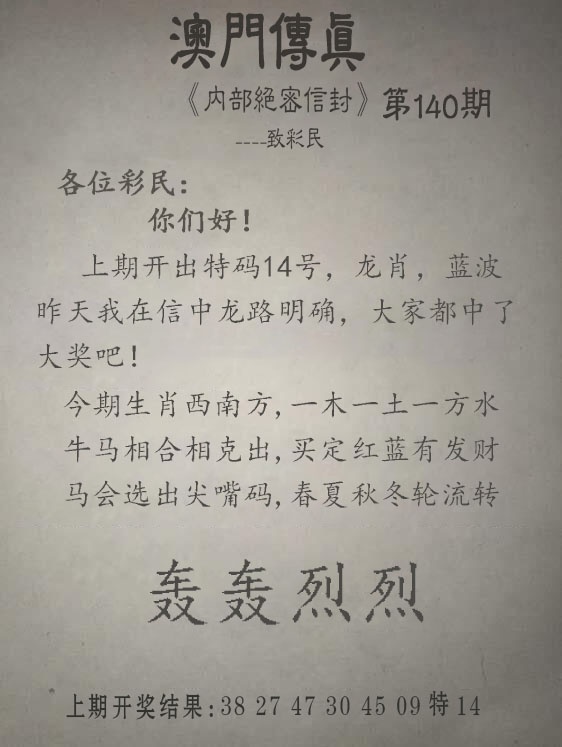 澳門傳眞
《内部絕密信封》第140期
----致彩民
各位彩民：
你们好！
上期开出特码14号，龙肖，蓝波
昨天我在信中龙路明确，大家都中了
大奖吧！
今期生肖西南方,一木一土一方水
牛马相合相克出,买定红蓝有发财
马会选出尖嘴码,春夏秋冬轮流转
轰轰烈烈
上期开奖结果:38 27 47 30 45 09 特 14